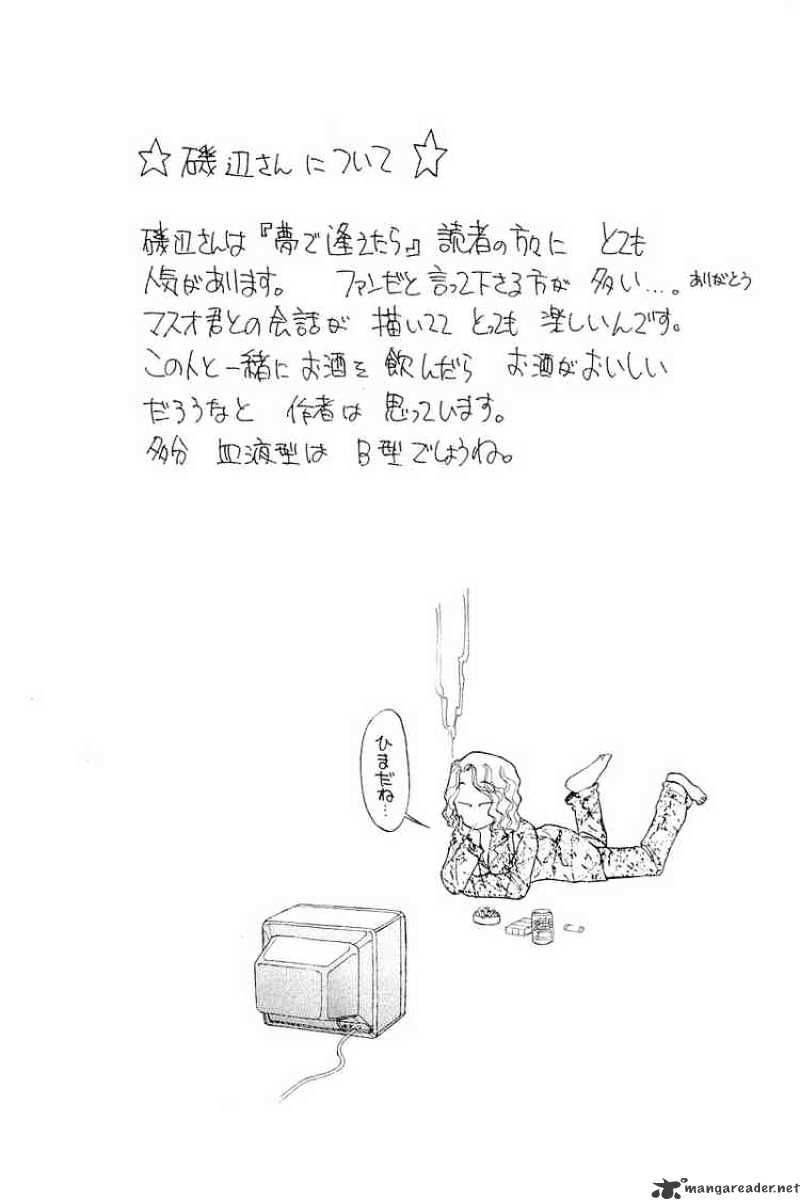 ☆ 磯辺さんについて ☆
磯辺さんは『夢で逢えたら』読者の方々に とても
人気があります。 ファンだと言って下さる方が 多い…。ありがとう
マスオ君との会話が 描いてて とっても 楽しいんです。
この人と一緒に お酒を 飲んだら お酒がおいしい
だろうなと 作者は 思っています。
多分 血液型は B型でしょうね。
ひまだね…
mangareader.net